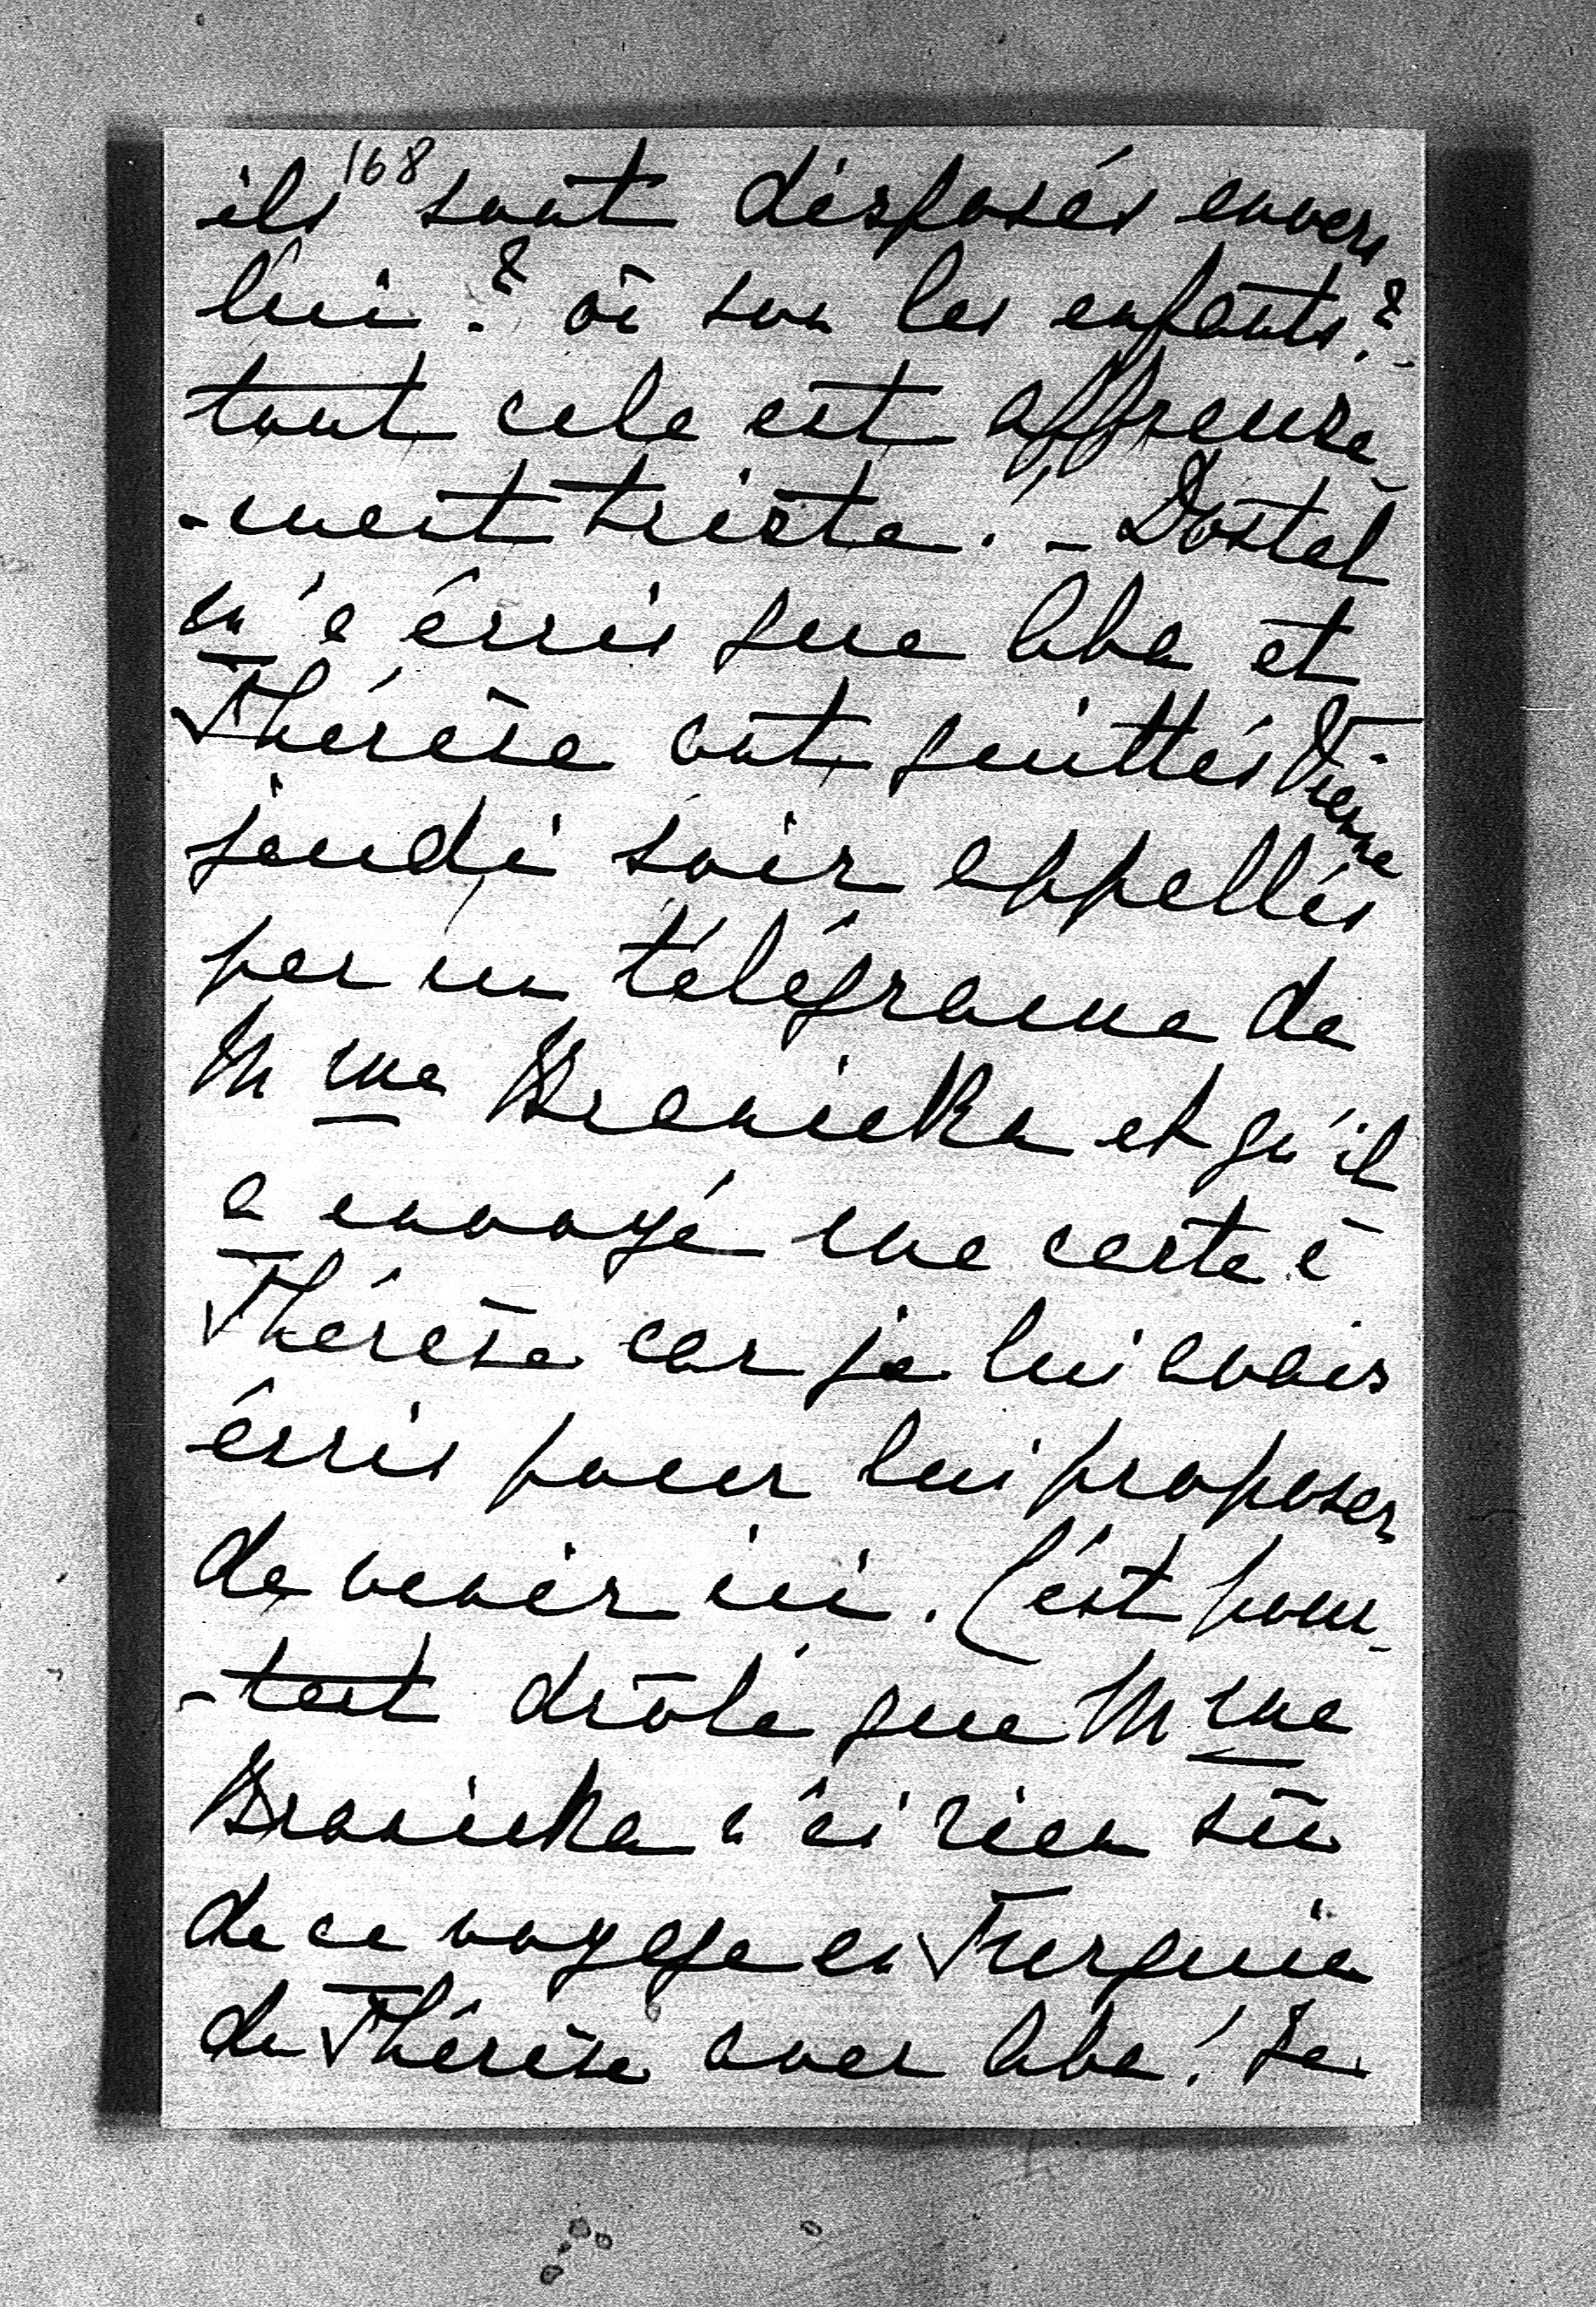 168
ils sont disposés envers
lui? où son les enfants?-
tout cela est affreuse
-ment triste! - Dostal
m'a écris que Aba et
Thérèse ont quittés Vienne
jeudi soir appellés
par un télégrame de
Mme Branicka et qu'il
a envoyé une carte à
Thérèse car je lui avais
écris pour lui proposer
de venir ici. C'est pour-
-tant drôle que Mme
Branicka n'ai rien sû
de ce voyage en Turquie
de Thérèse avec Aba! Se